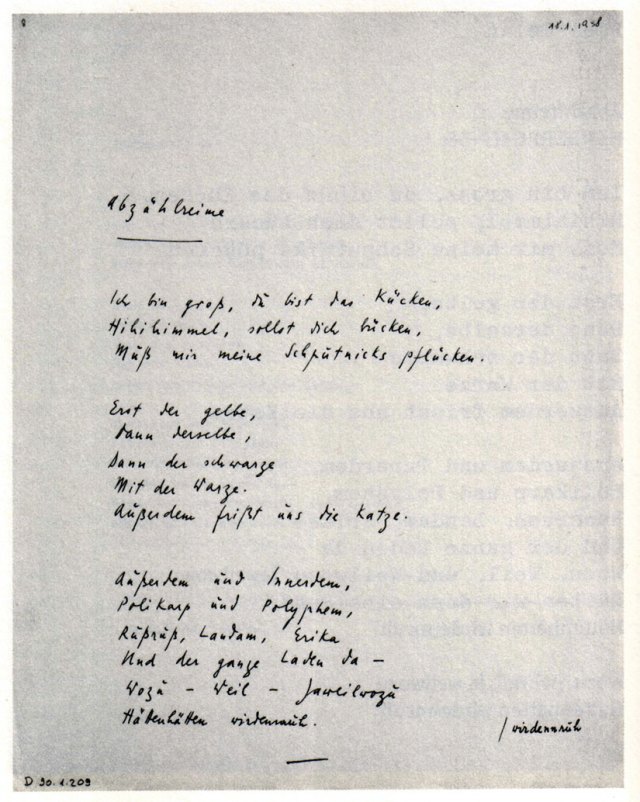 18.1.1958
Abzählreime
Ich bin groß, du bist das Kücken,
Hihihimmel, sollst dich bücken,
Muß mir meine Schputnicks pflücken.
Erst der gelbe,
Dann derselbe,
Dann der schwarze
Mit der Warze.
Außerdem frißt uns die Katze.
Außerdem und Innerdem,
Polikarp und Polyphem,
Rußruß, Landam, Erika
Und der ganze Laden da –
Wozu – Weil – Jaweilwozu
Hättenhätten wirdennruh.
/wirdennruh
D 90.1.209